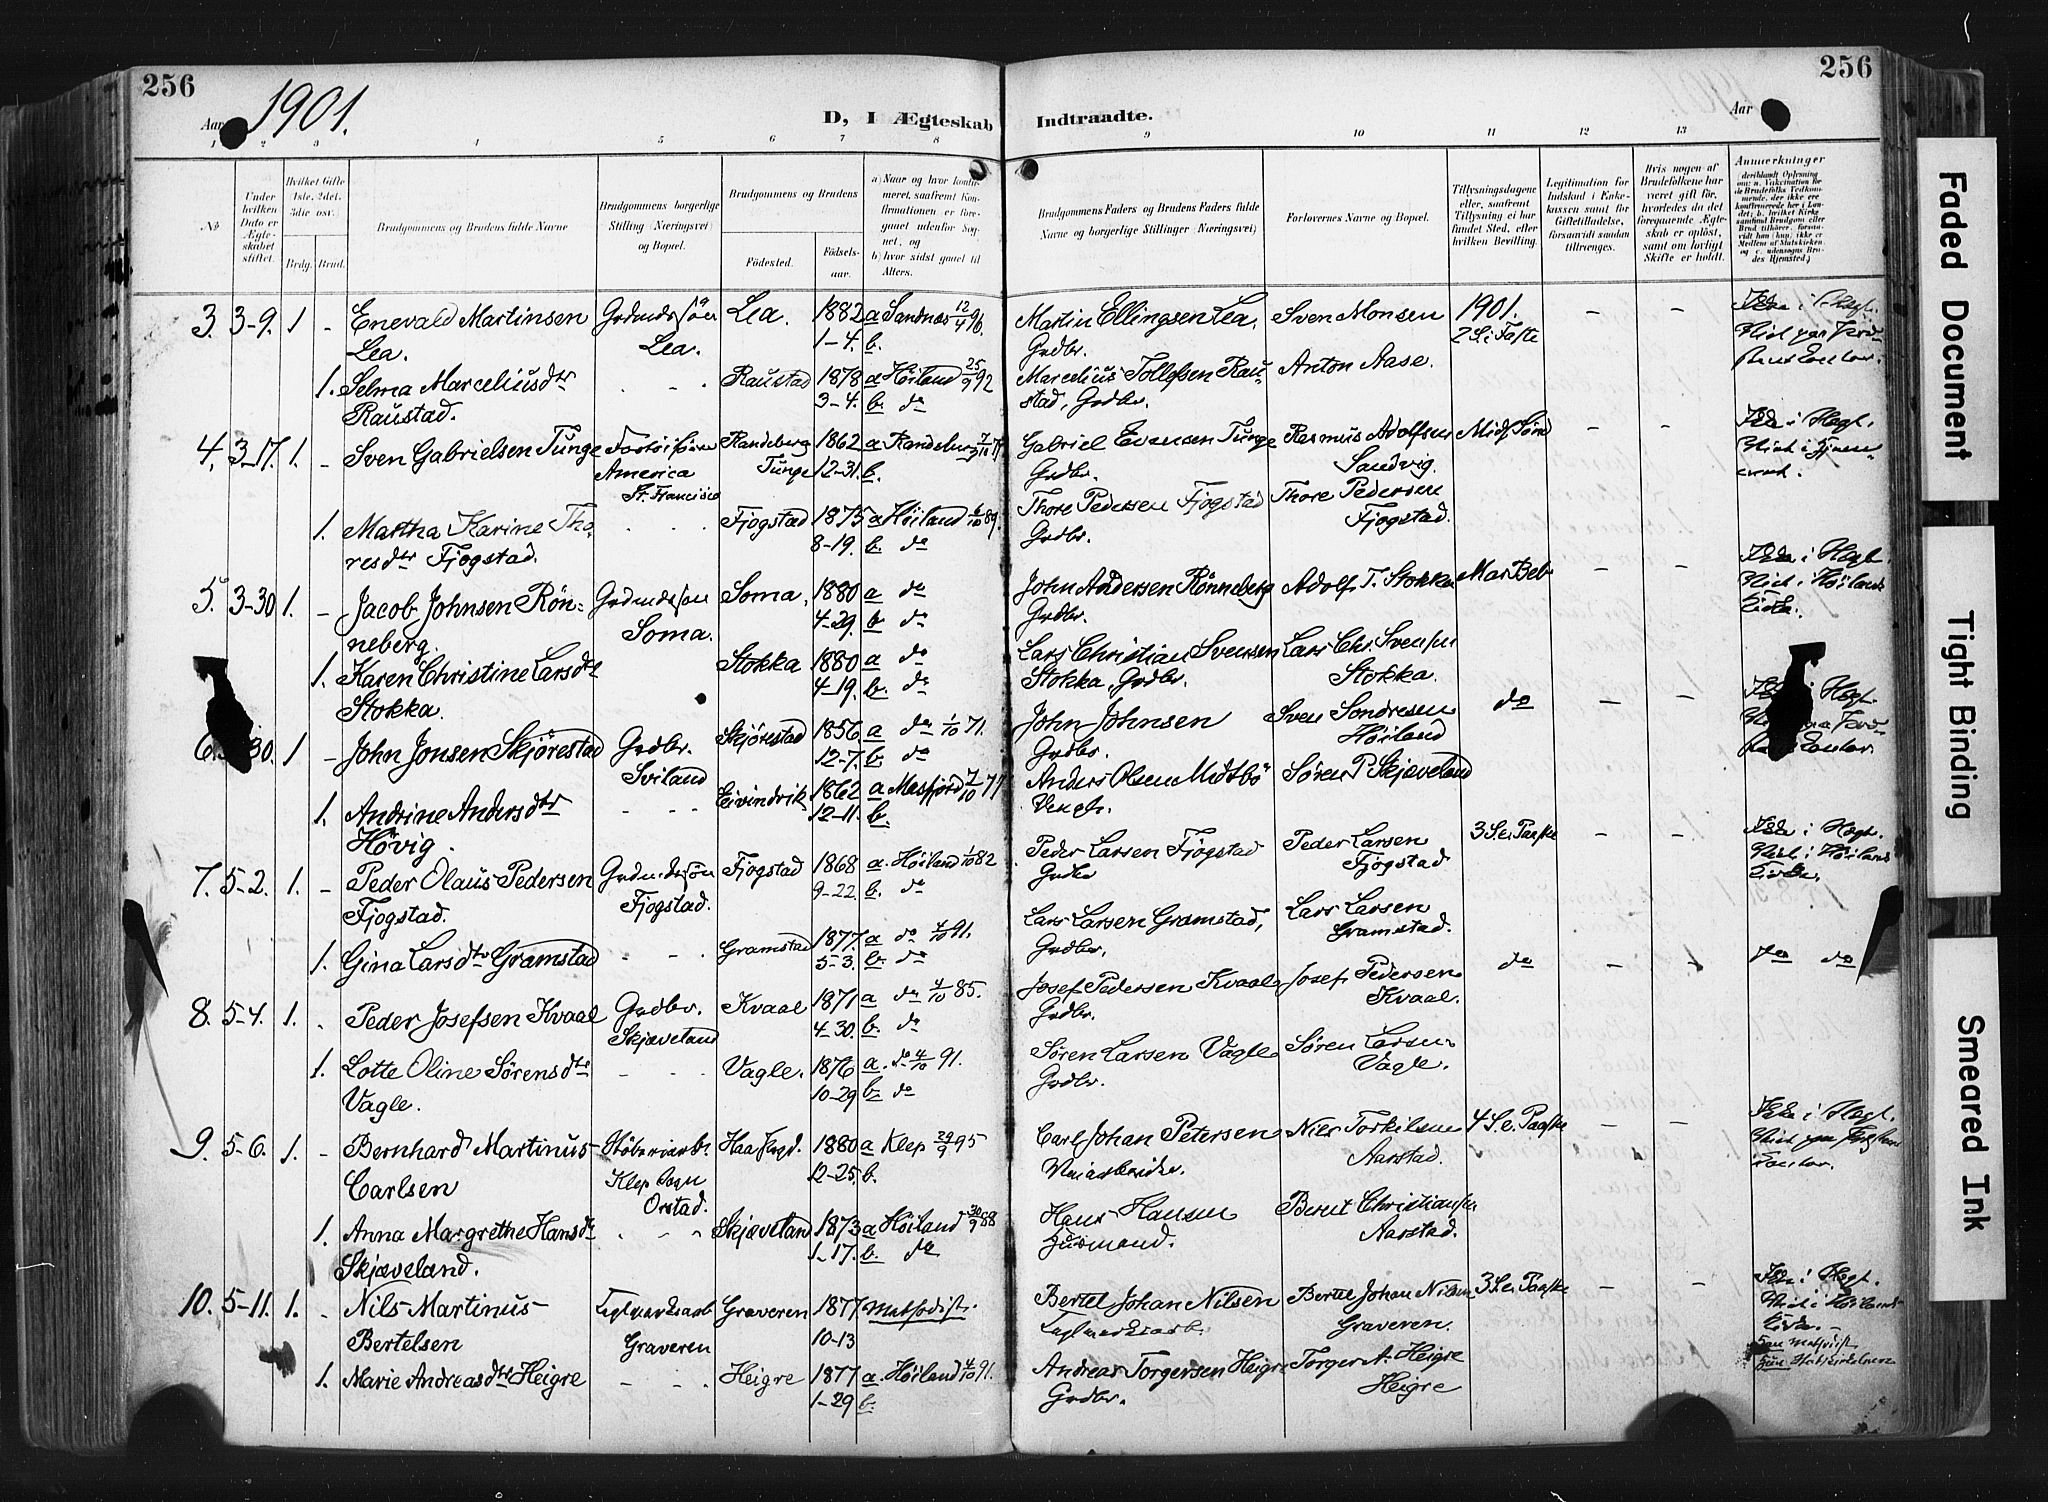 256
256
Aar 1901.
D, I Ægteskab Indtraadte.
Aar
1 2 3 4 5 6 7 8 9 10 11 12 13
№
Under hvilken Dato er Ægteskabet stiftet.
Hvilket Gifte 1ste, 2det, 3die osv.
Brdg. Brud.
Brudgommens og Brudens fulde Navne
Brudgommens borgerlige Stilling (Næringsvei) og Bopæl.
Brudgommens og Brudens
Födested.
Födselsaar.
a) Naar og hvor konfirmeret, saafremt Konfirmationen er foregaaet udenfor Sognet, og
b) hvor sidst gaaet til Alters.
Brudgommens Faders og Brudens Faders fulde Navne og borgerlige Stillinger (Næringsvei)
Forlovernes Navne og Bopæl.
Tillysningsdagene eller, saafremt Tillysning ei har fundet Sted, efter hvilken Bevilling.
Legitimation for Indskud i Enkekassen samt for Giftetilladelse, forsaavidt saadan tiltrænges.
Hvis nogen af Brudefolkene har været gift för, hvorledes da det foregaaende Ægteskab er oplöst, samt om lovligt Skifte er holdt.
Anmerkninger
3. 3-9. 1 - Enevald Martinsen Lea. Lea. Lea. 1882 1-4. a Sandnes 12/4 96. b.
Martin Ellingsen Lea. Grdbr. Sven Monsen 1901. 2 S. i Faste - -
1. Selma Marceliusdtr Raustad. - - Raustad 1878 3-4. a Höiland 25/9 92 b. do
Marcelius Tollefsen Raustad, Grdbr. Anton Aase.
4. 3-17. 1. - Sven Gabrielsen Tunge America St. Francisco Randeberg Tunge 1862 12-31. a b.
Gabriel Evensen Tunge Grdbr. Rasmus Adolfsen Sandvig. - -
1. Martha Karine Thoresdtr Fjogstad. - - Fjogstad 1875 8-19. a Höiland 6/10 89. b. do
Thore Pedersen Fjogstad Grdbr. Thore Pedersen Fjogstad.
5. 3-30 1. - Jacob Johnsen Rönneberg. Soma. Soma. 1880 4-29. a do b do
John Andersen Rönneberg Grdbr. Adolf T. Stokka Mar Beb - -
1. Karen Christine Larsdtr Stokka. Stokka 1880 4-19. a do b. do
Lars Christian Svensen Stokka, Grdbr. Lars Chr. Svensen Stokka.
6. 30. 1 - John Jonsen Skjörestad Grdbr. Sviland Skjörestad 1856 12-7. a do 1/10 71. b do
John Johnsen Grdbr. Sven Sondresen Höiland do - -
1. Andrine Andersdtr Hövig. - - Eivindvik 1862 12-11. a Masfjord 7/10 77 b.
Anders Olsen Midtbö Sören P. Skjæveland
7. 5-2. 1. - Peder Olaus Pedersen Fjogstad. Fjogstad. Fjogstad 1868 9-22. a. Höiland 1/10 82 b. do
Peder Larsen Fjogstad Grdbr Peder Larsen Fjogstad 3 S. e. Paaske - -
1. Gina Larsdtr Gramstad - - Gramstad 1877. 5-3. a do 4/10 91. b. do
Lars Larsen Gramstad, Grdbr. Lars Larsen Gramstad.
8. 5-4. 1. - Peder Josefsen Kvaal Grdbr. Skjæveland Kvaal 1871 4-30. a do 4/10 85. b. do
Josef Pedersen Kvaal Grdbr. Josef Pedersen Kvaal. do - - do do
1. Lotte Oline Sörensdtr Vagle. - - Vagle. 1876 10-29 a. do 4/10 91. b. do
Sören Larsen Vagle Grdbr. Sören Larsen Vagle.
9. 5-6. 1. - Bernhard Martinus Carlsen Klep Sogn Orstad. 1880 12-25. a Klep 29/9 95 b.
Carl Johan Petersen Nils Torkilsen Aarstad. 4 S. e. Paaske - -
1. Anna Margrethe Hansdtr Skjæveland. - - Skjæveland 1873 1-17. a Höiland 30/9 88 b. do
Hans Hansen Husmand. Bernt Christiansen Aarstad.
10. 5-11. 1. - Nils Martinus Bertelsen Graveren Graveren 1877 10-13 Methodist.
Bertel Johan Nilsen Bertel Johan Nilsen Graveren. 3 S. e. Paaske - -
1. Marie Andreasdtr Heigre - - Heigre 1877 1-29 a. Höiland 4/10 91. b.
Andreas Torgersen Heigre Grdbr. Torger A. Heigre Heigre
Faded Document
Tight Binding
Smeared Ink